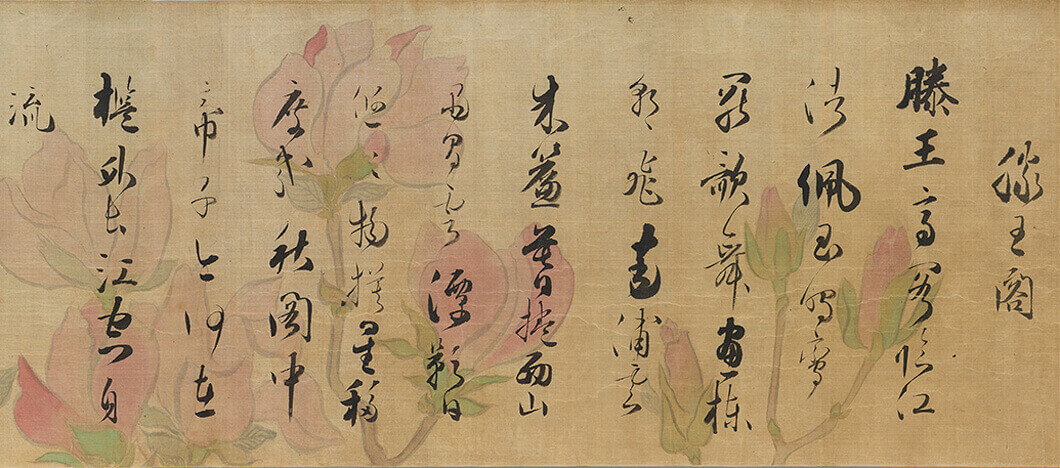 滕王閣
滕王高閣臨江
渚佩玉鳴鸞
罷歌舞畫棟
朝飛南浦雲
朱簾暮捲西山
雨閒雲潭影日
悠悠物換星移
度幾秋閣中
帝子今何在
檻外長江空自
流